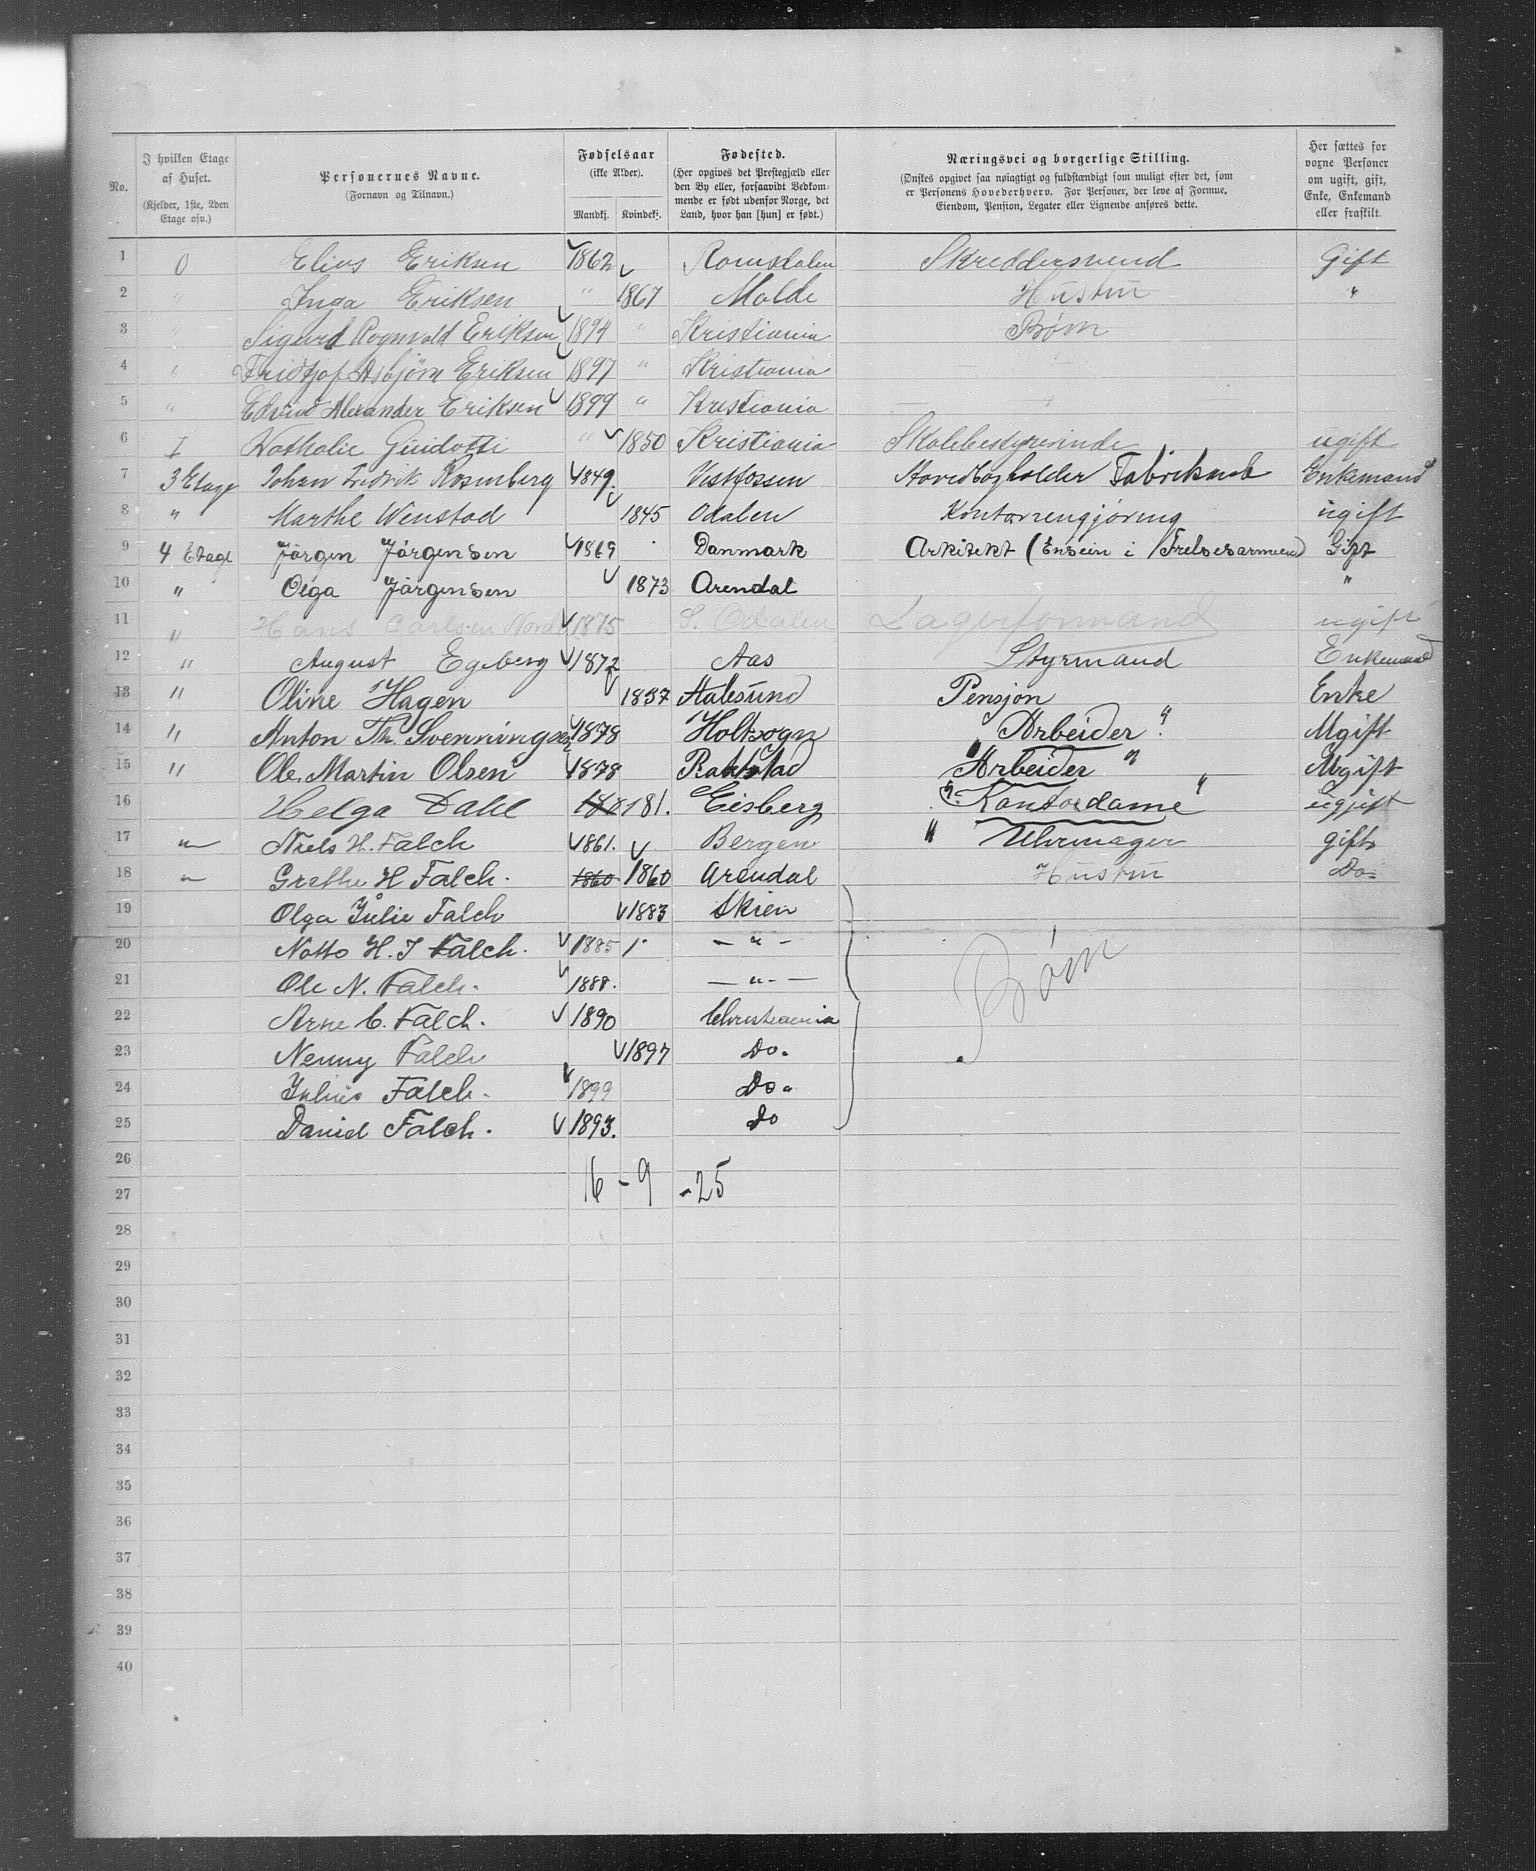 No. | I hvilken Etage af Huset. (Kjelder, 1ste, 2den Etage osv.) | Personernes Navne. (Fornavn og Tilnavn.) | Fødselsaar (ikke Alder). Mandkj. | Kvindekj. | Fødested. (Her opgives det Prestegjæld eller den By eller, forsaavidt Vedkommende er født udenfor Norge, det Land, hvor han [hun] er født.) | Næringsvei og borgerlige Stilling. (Ønskes opgivet saa nøiagtigt og fuldstændigt som muligt efter det, som er Personens Hovederhverv. For Personer, der leve af Formue, Eiendom, Pension, Legater eller Lignende anføres dette. | Her sættes for voxne Personer om ugift, gift, Enke, Enkemand eller fraskilt.
1 | 0 | Elius Eriksen | 1862 | | Romsdalen | Skreddersvend | Gift
2 | " | Inga Eriksen | " | 1867 | Molde | Hustru | "
3 | " | Sigurd Rognvald Eriksen | 1894 | " | Kristiania | Børn
4 | " | Fridtjof Asbjørn Eriksen | 1897 | " | Kristiania
5 | " | Edvin Alexander Eriksen | 1899 | " | Kristiania
6 | I | Nathalie Guidotti | " | 1850 | Kristiania | Skolebestyrerinde | ugift
7 | 3 Etage | Johan Fredrik Rosenberg | 1849. | | Vestfossen | Hovedbogholder Fabrik | Enkemand
8 | " | Marthe Wenstad | | 1845 | Odalen | Kontorrengjøring | ugift
9 | 4 Etage | Jörgen Jörgensen | 1869 | | Danmark | Arkitekt (Ensein i Frelsesarmeen) | Gift
10 | " | Olga Jörgensen | | 1873 | Arendal | | "
11 | " | Hans Carlsen Nord | 1875 | | S. Odalen | Lagerformand | ugift
12 | " | August Egeberg | 1872 | | Aas | Styrmand | Enkemand
13 | " | Oline Hagen | | 1837 | Aalesund | Pensjon | Enke
14 | " | Anton Th. Svenningsen | 1878 | | Holtsogn | Arbeider " | Ugift
15 | " | Ole Martin Olsen | 1878 | | Rakkstad | " Arbeider " | Ugift
16 | | Helga Dahl | | 181. | Eisberg | " Kontordame " | ugift
17 | " | Niels H. Falch | 1861. | | Bergen | " Uhrmager | gift
18 | " | Grethe H Falch. | 1860 | 1860 | Arendal | Hustru | Do
19 | | Olga Julie Falch | | 1883 | Skien
20 | | Notto H. J Falch. | 1885 | 1. | — " —
21 | | Ole N. Falch. | 1888. | | — " — | Børn
22 | | Arne C. Falch. | 1890 | | Christiania
23 | | Nenny Falch | | 1897 | Do.
24 | | Julius Falch. | 1899 | | Do.
25 | | Daniel Falch. | 1893. | | Do
26
27 | | | 16 - 9 - 25
28
29
30
31
32
33
34
35
36
37
38
39
40